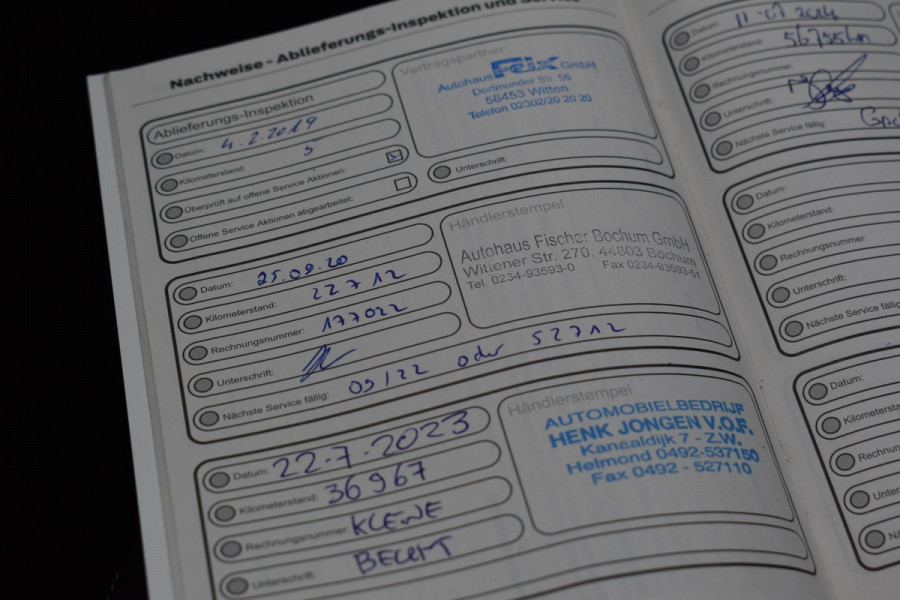 Nachweise - Ablieferungs-Inspektion und
Ablieferungs-Inspektion
Datum: 4.2.2019
Kilometerstand: 5
Überprüft auf offene Service Aktionen:
Offene Service Aktionen abgearbeitet:
Vertragspartner
Autohaus Feix GmbH
Dortmunder Str. 56
58453 Witten
Telefon 02302/20 20 20
Unterschrift:
Datum: 25.09.20
Kilometerstand: 22712
Rechnungsnummer: 177022
Unterschrift:
Nächste Service fällig: 09/22 oder 52712
Händlerstempel
Autohaus Fischer Bochum GmbH
Wittener Str. 270, 44803 Bochum
Tel. 0234-93593-0 Fax 0234-93593-51
Datum: 22-7-2023
Kilometerstand: 36967
Rechnungsnummer: KLEINE
Unterschrift: BEURT
Händlerstempel
AUTOMOBIELBEDRIJF
HENK JONGEN V.O.F.
Kanaaldijk 7 - Z.W.
Helmond 0492-537150
Fax 0492 - 527110
Datum:
Kilometerstand:
Rechnungsnummer:
Unterschrift:
Nächste Service fällig:
Datum:
Kilometerstand:
Rechnungsnummer:
Unterschrift:
Nächste Service fällig:
Datum:
Kilometersta
Rechnun
Unter